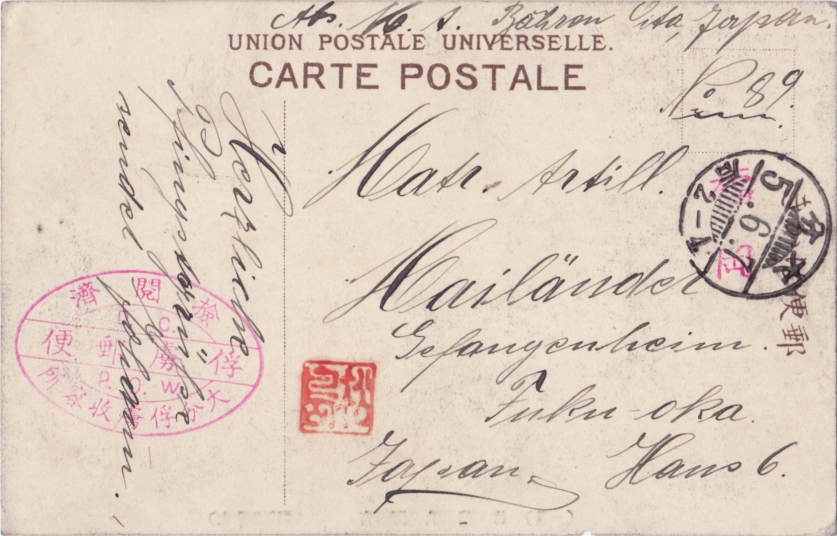 Abs. M. A. Böhren Oita, Japan.
UNION POSTALE UNIVERSELLE.
CARTE POSTALE
No. 89.
Matr. Artill.
Mailänder
Gefangenheim.
Fuku-oka.
Japan, Haus 6.
Herzliche
Pfingstgrüße
sendet Johann.
5.6.7
便郵
檢閱濟
F. C.
俘虜郵便
P. O. W.
大分俘虜收容所